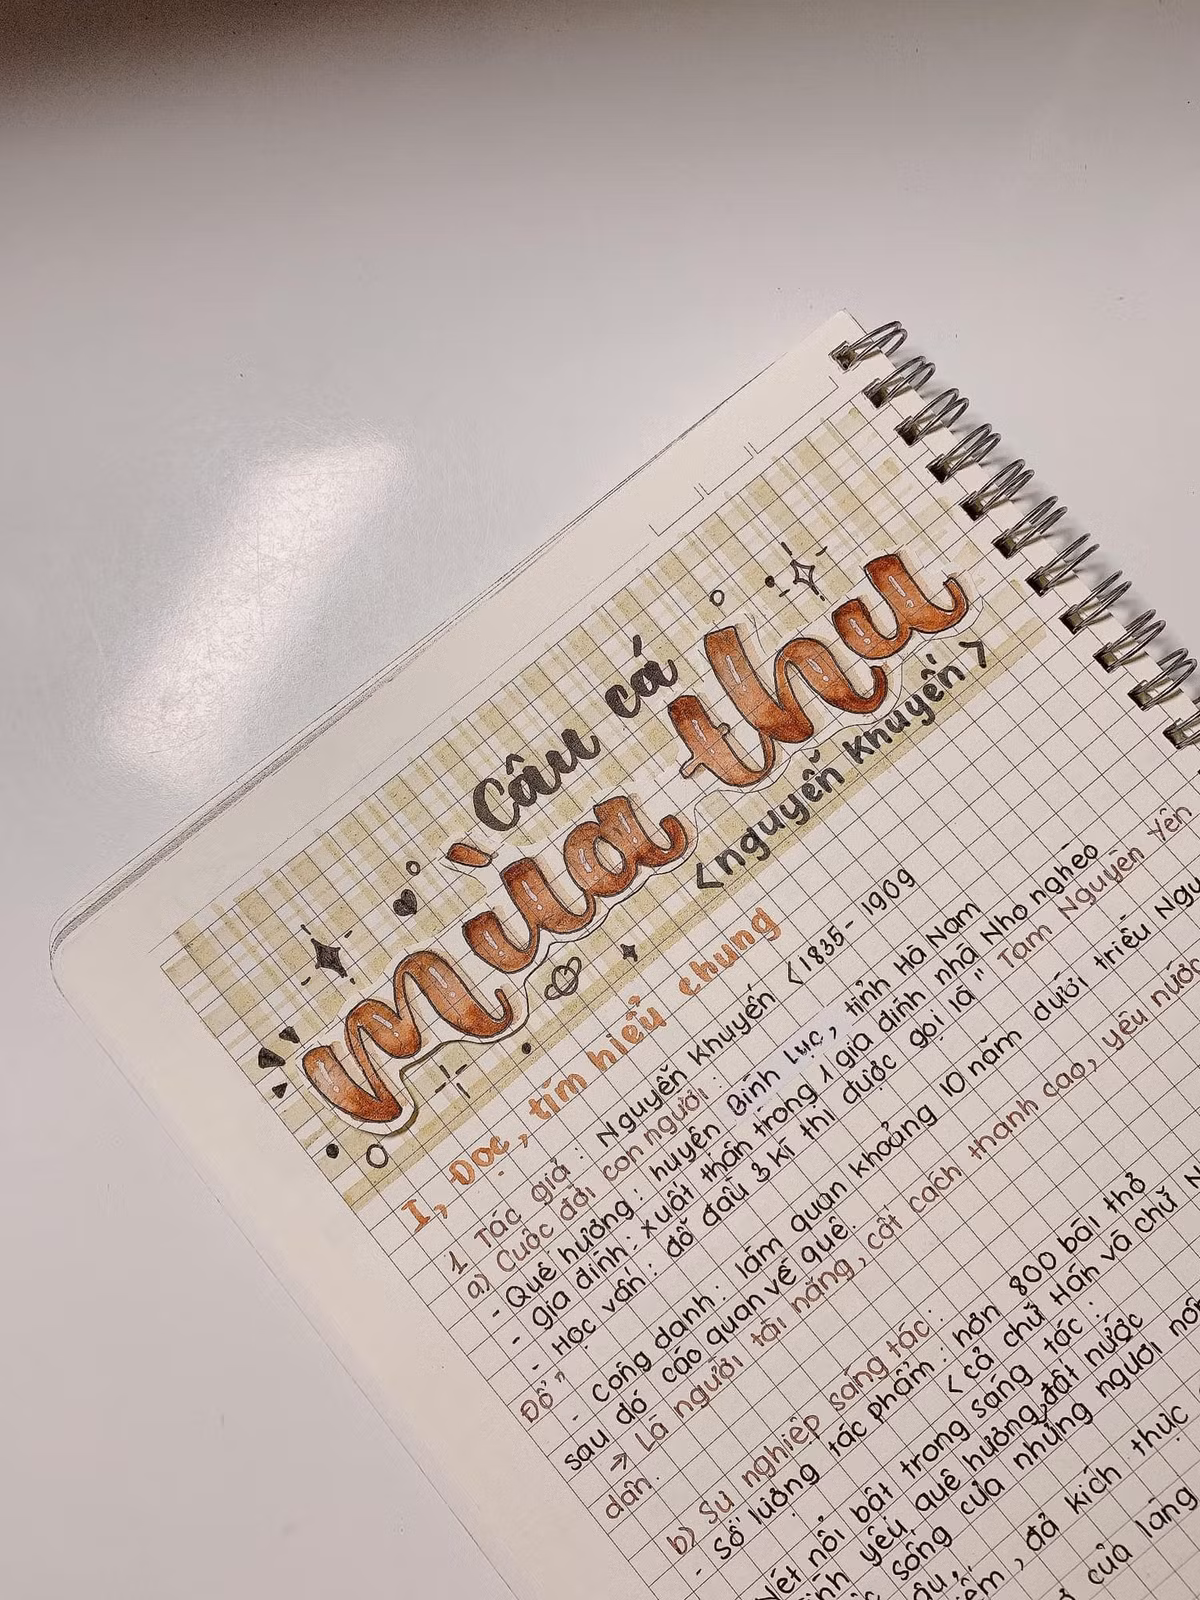 Câu cá
mùa thu
<nguyễn khuyến>
I, Đọc, tìm hiểu chung
1. Tác giả: Nguyễn Khuyến <1835 - 1909
a) Cuộc đời con người:
- Quê hương: huyện Bình Lục, tỉnh Hà Nam
- gia đình: xuất thân trong 1 gia đình nhà Nho nghèo
- Học vấn: đỗ đầu 3 kì thi được gọi là " Tam Nguyên Yên
Đổ "
- Công danh: làm quan khoảng 10 năm dưới triều
sau đó cáo quan về quê.
→ Là người tài năng, cốt cách thanh cao, yêu nước
dân.
b) Sự nghiệp sáng tác:
- Số lượng tác phẩm: hơn 800 bài thơ
<cả chữ Hán và chữ
Nét nổi bật trong sáng tác:
yêu quê hương, đất nước
sống của những người
đả kích thực
của làng